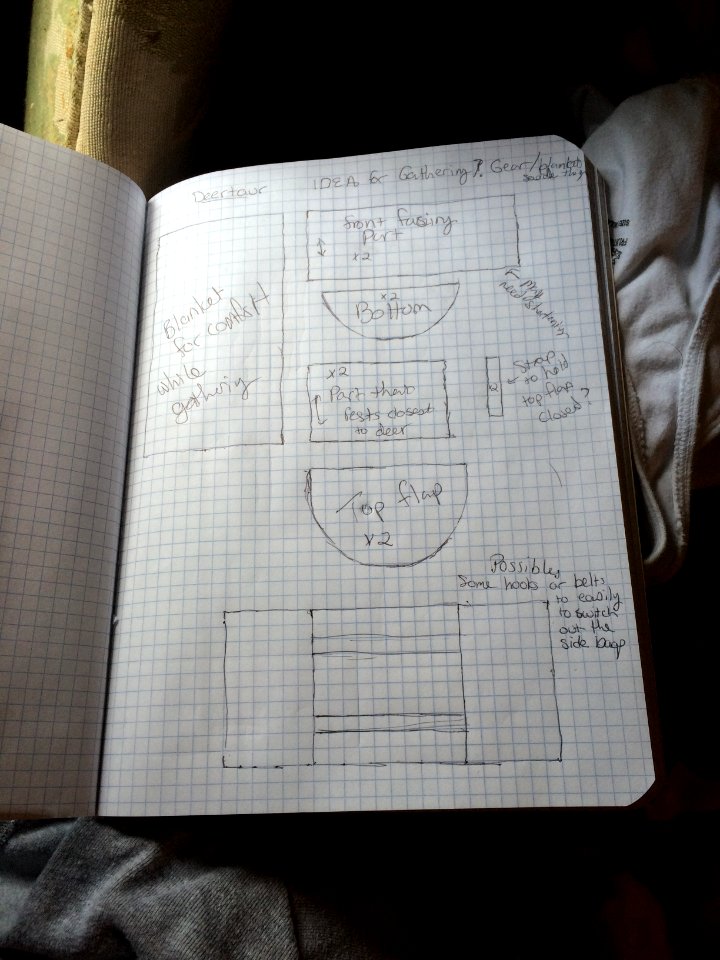 Deertaur IDEA for Gathering? Gear/blanket
saddle thing
front facing
Part
x2
May
need shortening
x2
Bottom
Blanket
for comfort
while
gathering
x2
Part that
rests closest
to deer
x2
Strap
to hold
top flap
closed?
Top flap
x2
Possible,
Some hooks or belts
to easily
to switch
out the
side bags